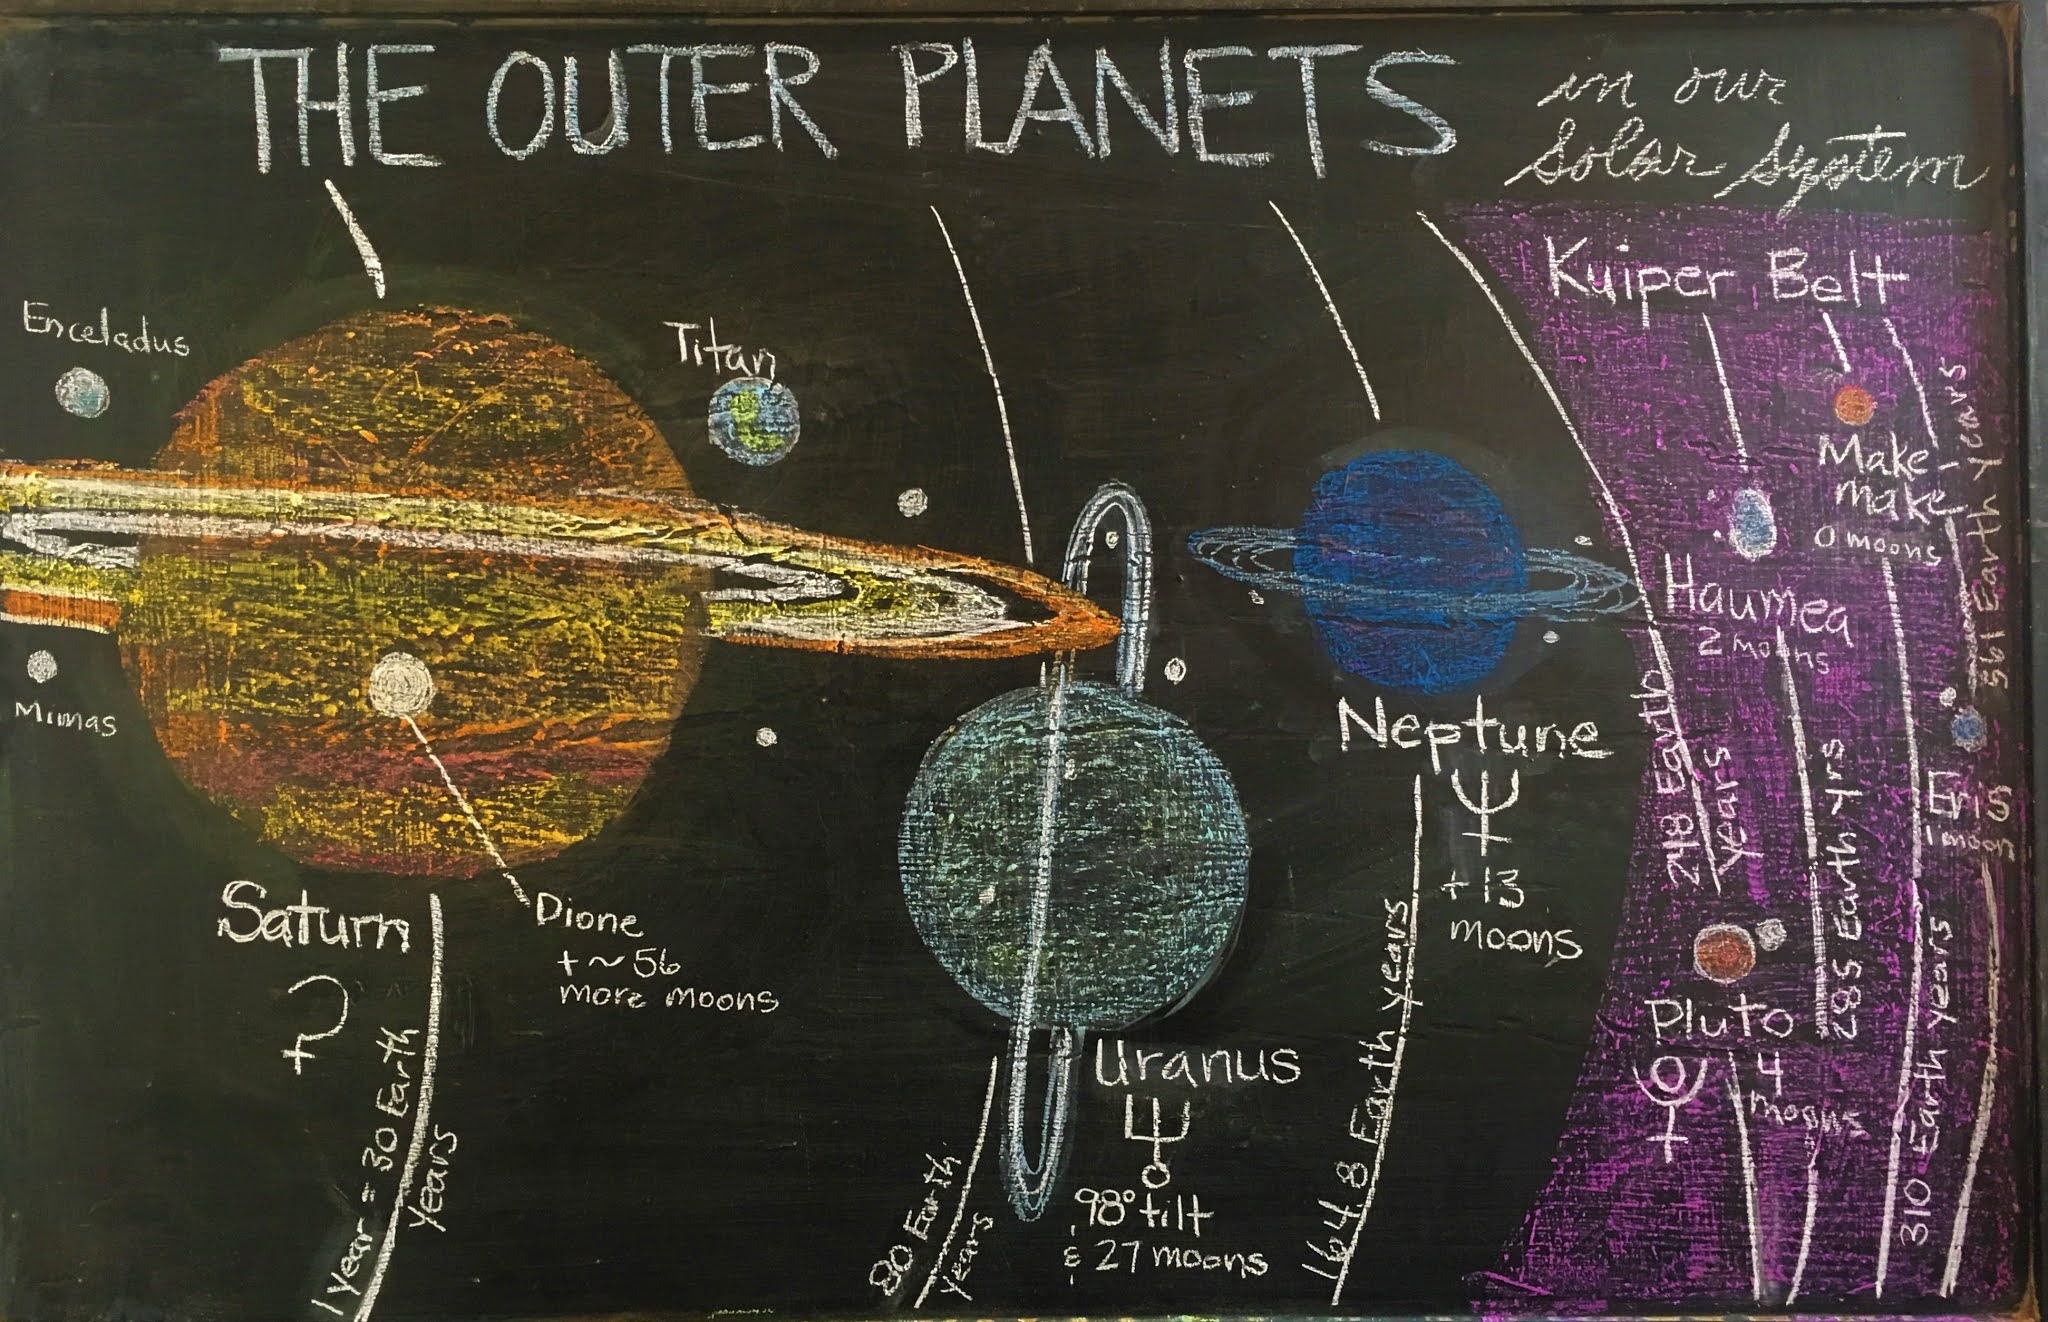 THE OUTER PLANETS
in our
Solar System
Kuiper Belt
Enceladus
Titan
Mimas
Saturn
1 year = 30 Earth
years
Dione
+ ~ 56
more moons
Uranus
98° tilt
& 27 moons
80 Earth
years
Neptune
+ 13
moons
164.8 Earth years
Pluto
4
moons
218 Earth
years
Haumea
2 moons
285 Earth yrs
Make-
make
0 moons
310 Earth years
Eris
1 moon
561 Earth years